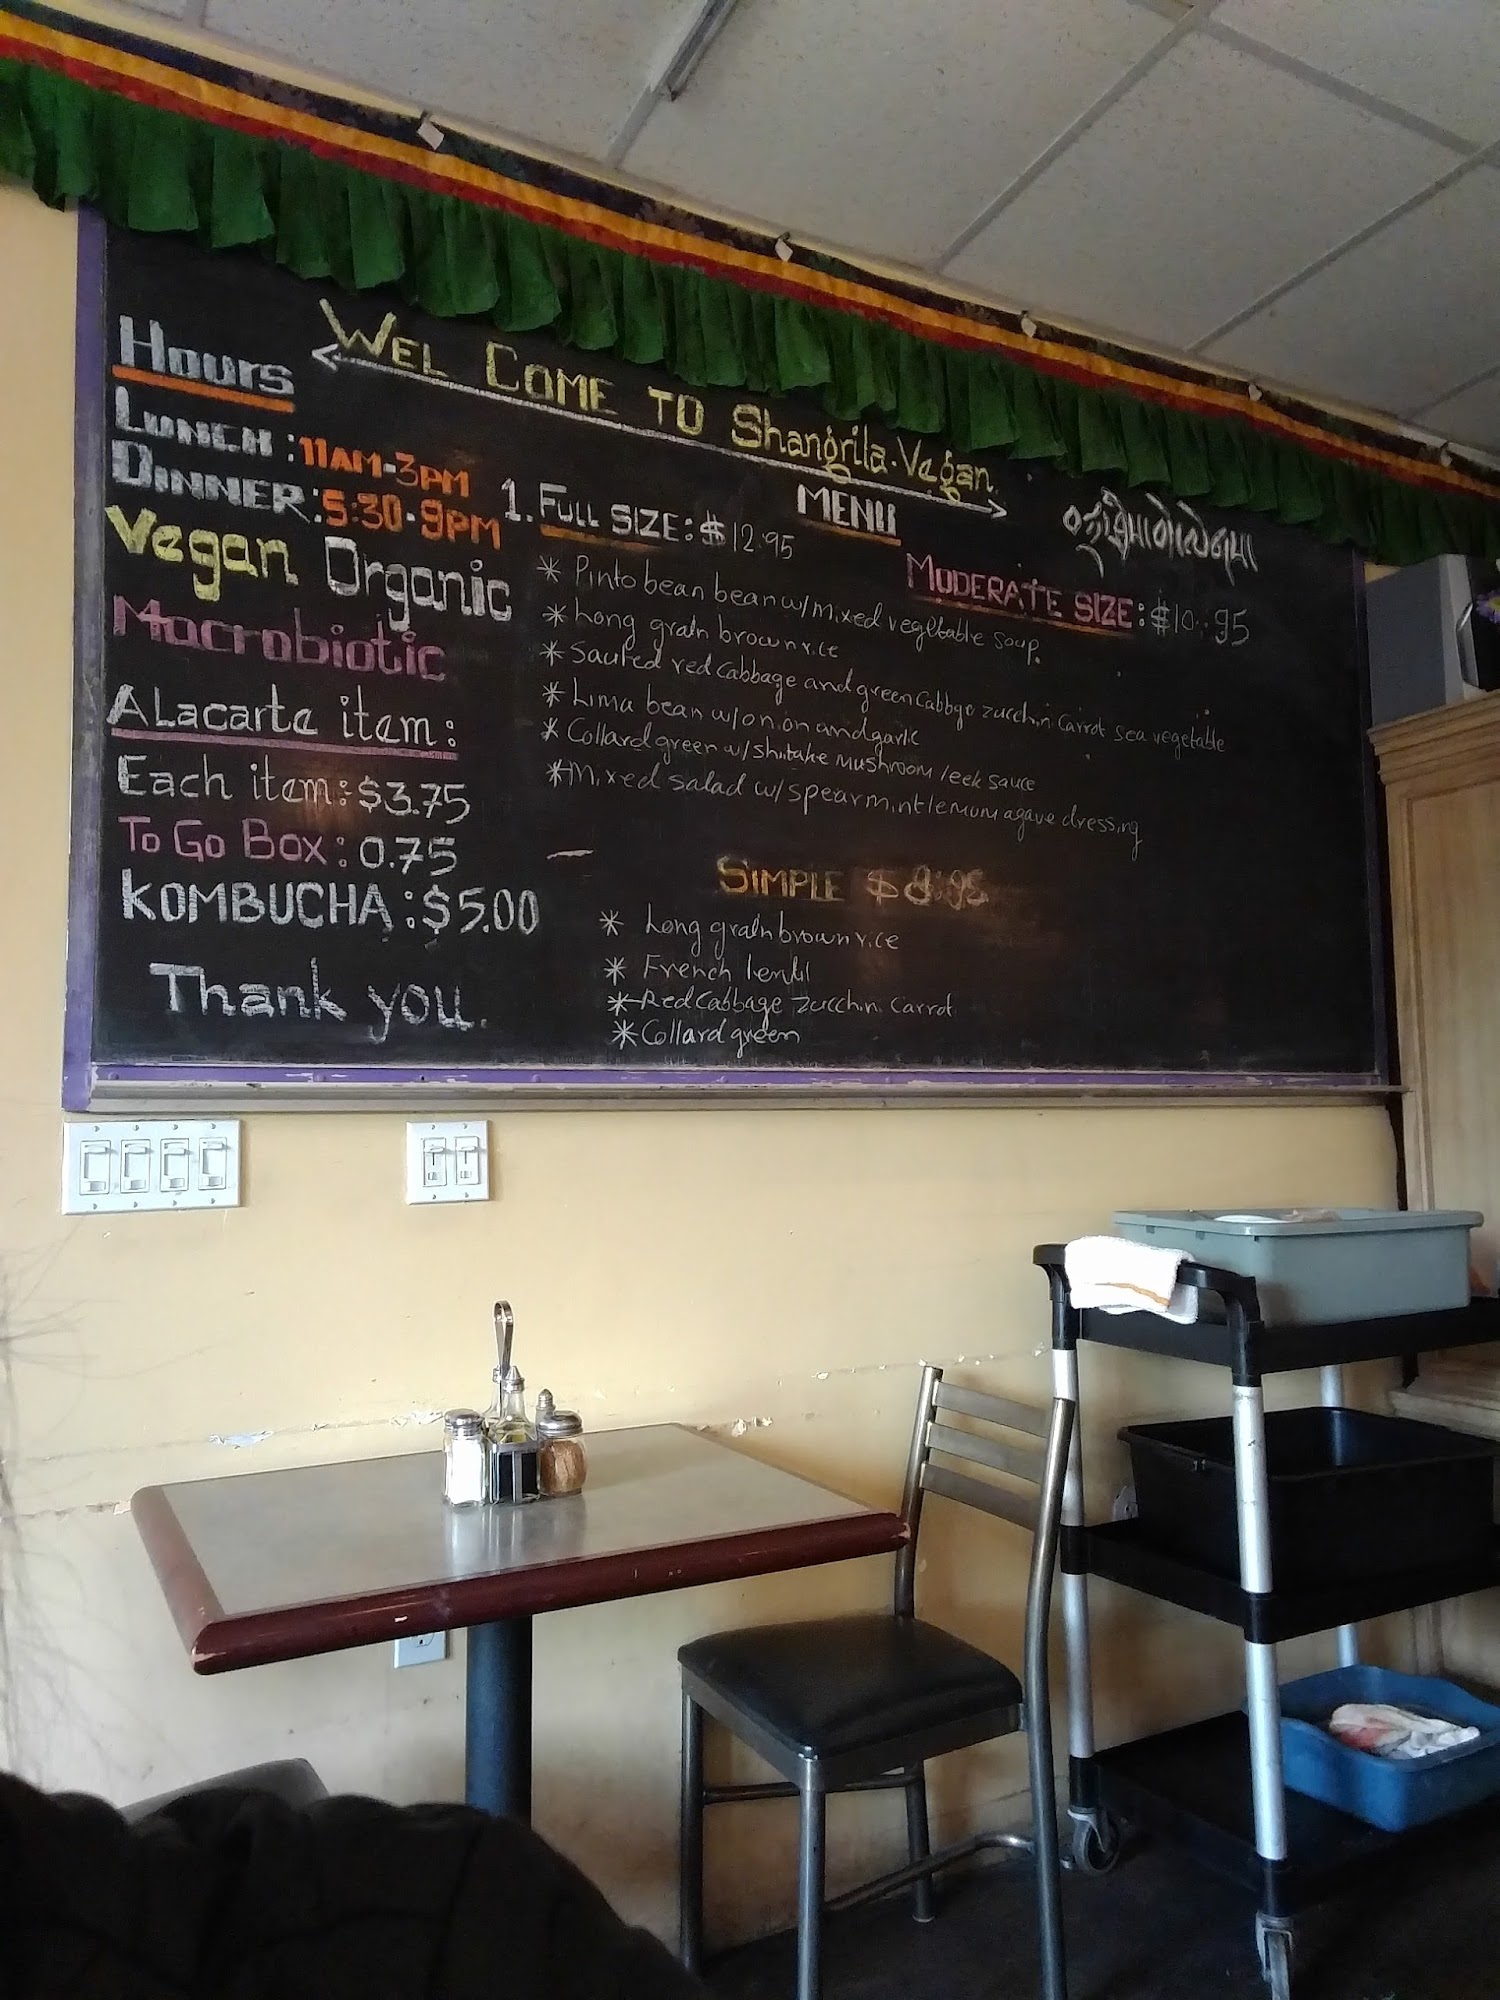 WEL COME TO Shangrila.Vegan.
Hours
LUNCH : 11AM-3PM
DINNER: 5:30-9PM
Vegan Organic
Macrobiotic
ALacarte item:
Each item: $3.75
To Go Box: 0.75
KOMBUCHA: $5.00
Thank you.
MENU
1. FULL SIZE: $12.95
MODERATE SIZE: $10.95
* Pinto bean bean w/ mixed vegetable soup.
* Long grain brown rice
* Sauted red cabbage and green Cabbge zucchin Carrot sea vegetable
* Lima bean w/ onion and garlic
* Collard green w/ shiitake mushroom leek sauce
* Mixed salad w/ spearmint lemon agave dressing
SIMPLE $8.95
* Long grain brown rice
* French lentil
* Red Cabbage zucchin Carrot
* Collard green